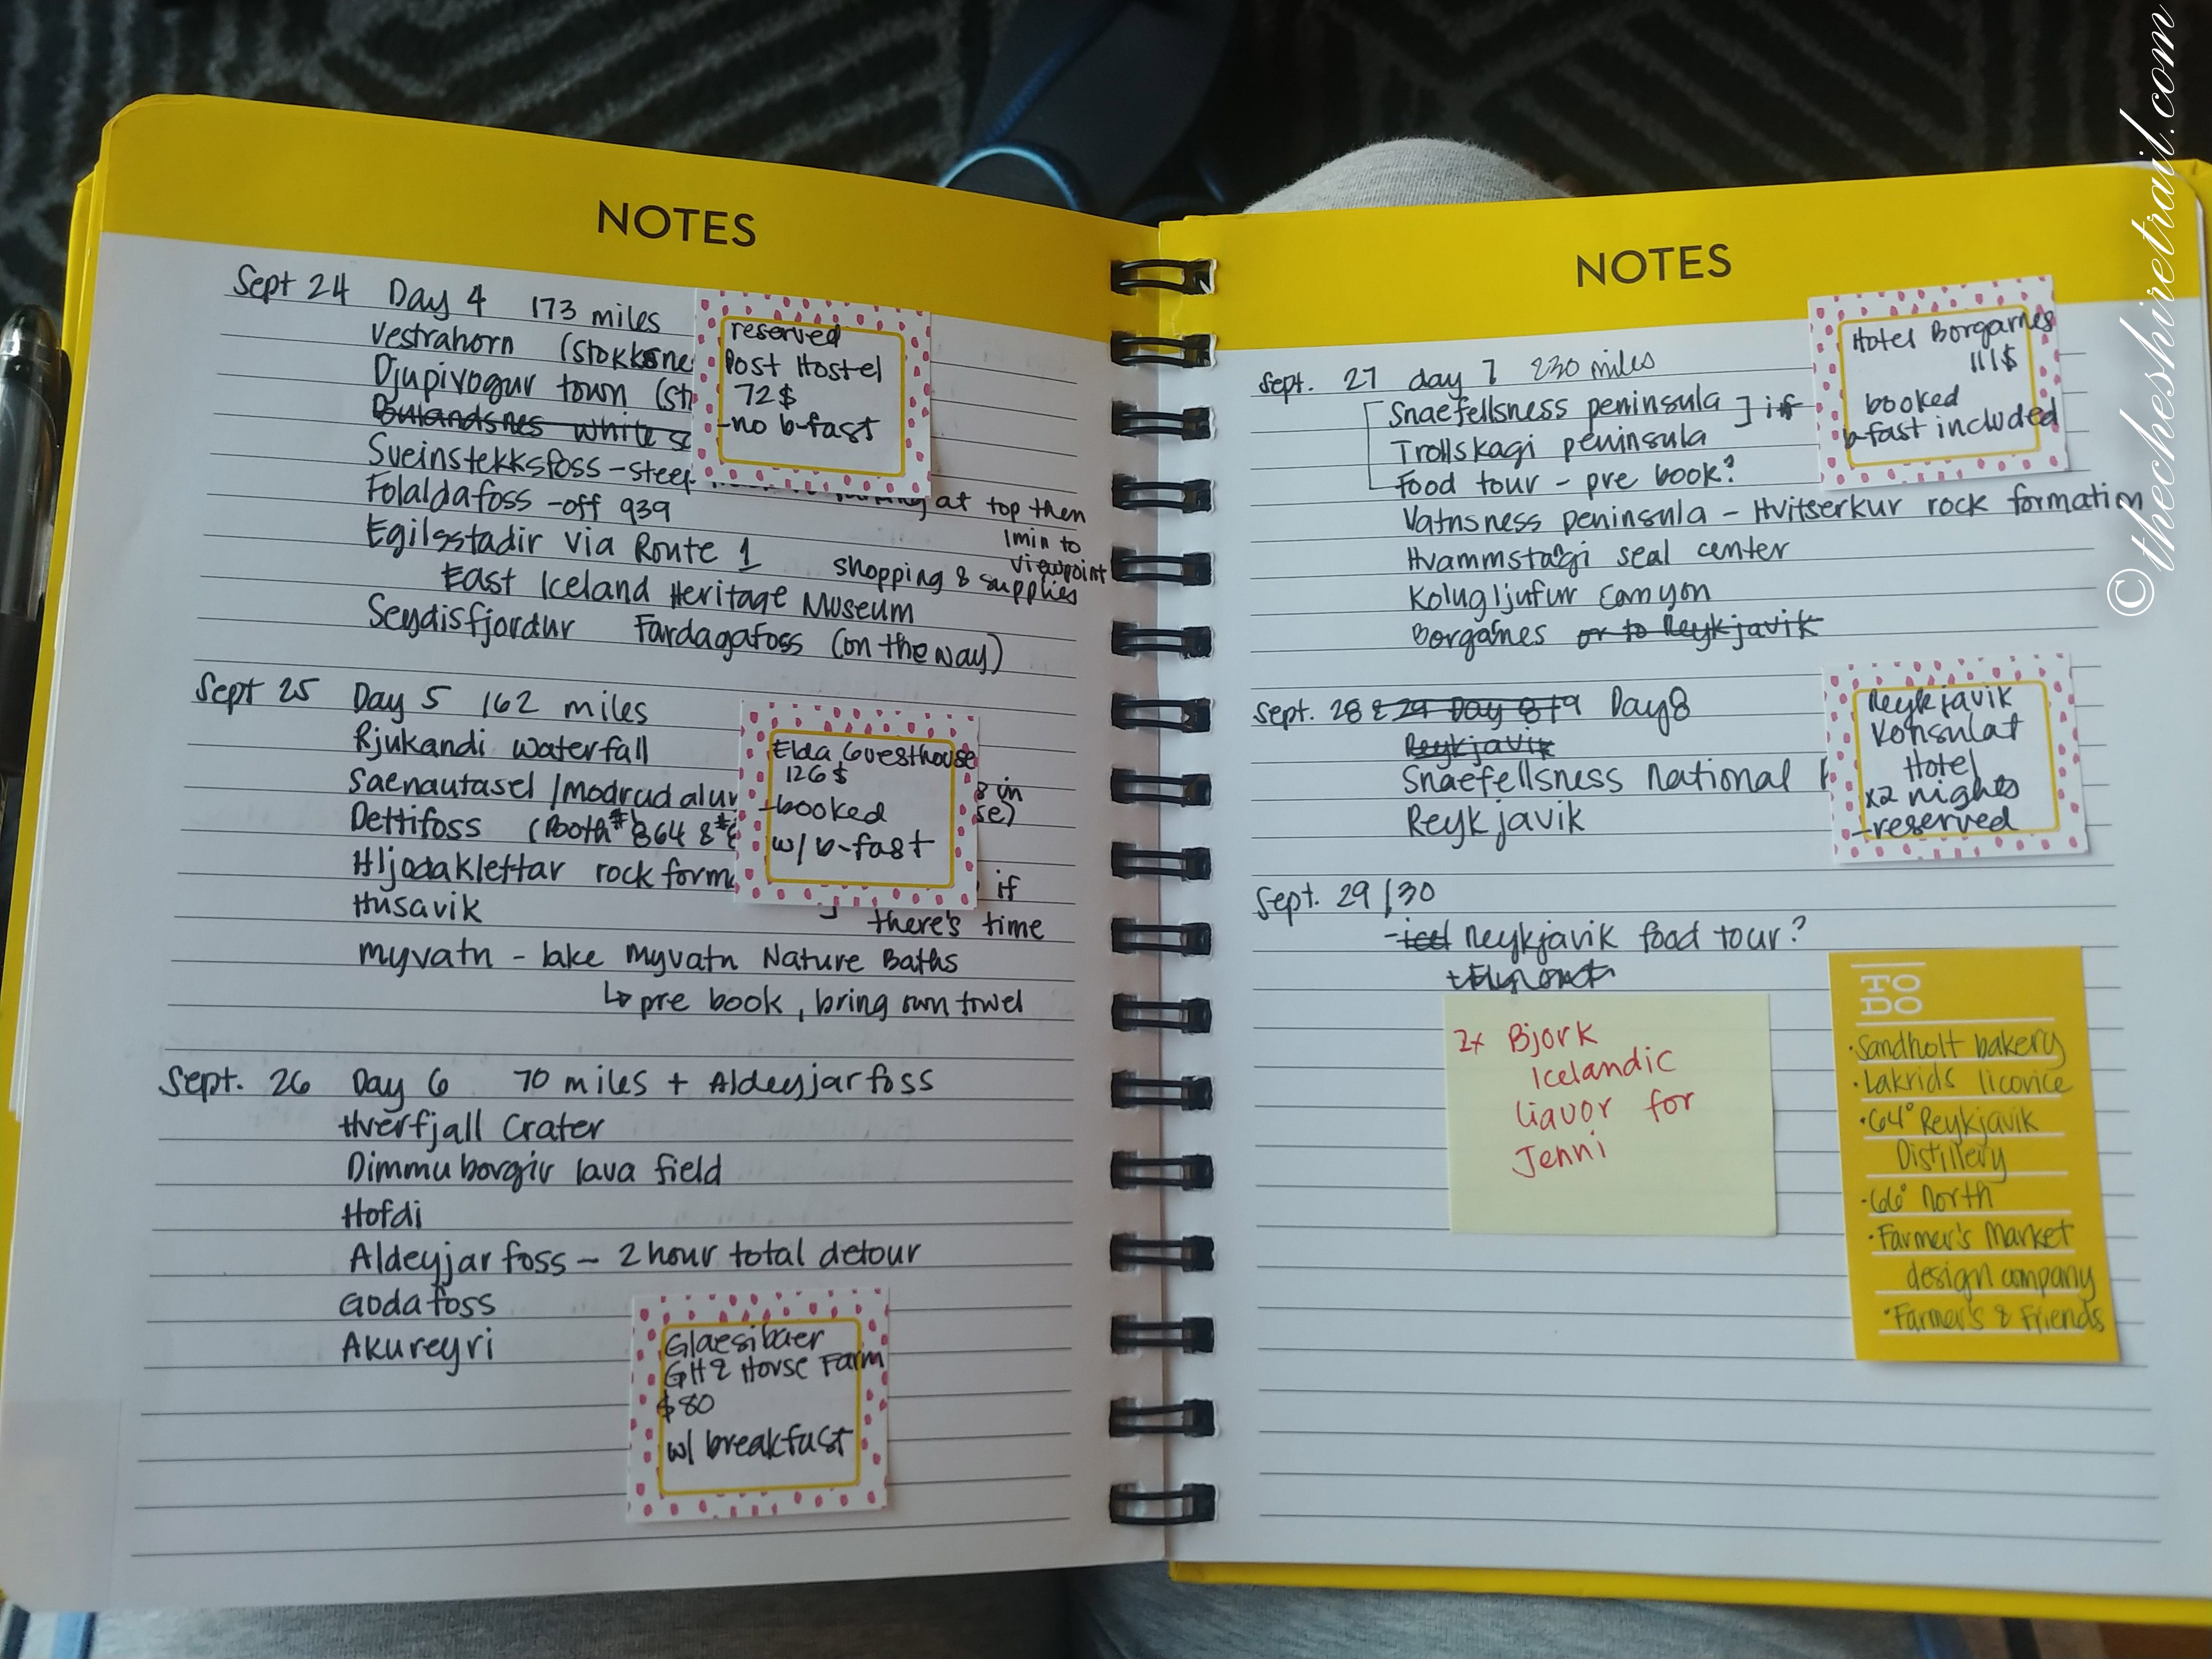 NOTES
Sept 24 Day 4 173 miles
Vestrahorn (stokksne
Djupivogur town (st
Bulandsnes white s
Sveinstekksfoss - steep
at top then
1min to
viewpoint
Folaldafoss - off 939
Egilsstadir via Route 1 shopping & supplies
East Iceland Heritage Museum
Seydisfjordur Fardagafoss (on the way)
reserved
Post Hostel
72$
-no b-fast
Sept 25 Day 5 162 miles
Rjukandi waterfall
Saenautasel /modrudalur
8 in
Dettifoss (Booth # 864 8
se)
Hljodaklettar rock form
if
there's time
Husavik
Myvatn - lake Myvatn Nature Baths
↳ pre book, bring own towel
Elda Guesthouse
126$
-booked
w/ b-fast
Sept. 26 Day 6 70 miles + Aldeyjarfoss
Hverfjall Crater
Dimmuborgir lava field
Hofdi
Aldeyjarfoss - 2 hour total detour
Godafoss
Akureyri
Glaesibaer
GH & Horse Farm
$80
w/ breakfast
NOTES
Sept. 27 day 7 230 miles
[Snaefellsness peninsula ] if
Trollskagi peninsula
Food tour - pre book?
Vatnsness peninsula - Hvitserkur rock formation
Hvammstangi seal center
Kolugljufur Canyon
Borganes or to Reykjavik
Hotel Borgarnes
111$
booked
b-fast included
Sept. 28 & 29 Day 8+9 Day 8
Reykjavik
Snaefellsness National P
Reykjavik
Reykjavik
Konsulat
Hotel
x2 nights
-reserved
Sept. 29/30
- Reykjavik food tour?
2x Bjork
Icelandic
liquor for
Jenni
TO
DO
·Sandholt bakery
·Lakrids licorice
·64° Reykjavik
Distillery
·66° North
·Farmer's Market
design company
·Farmer's & Friends
© thecheshiretrail.com